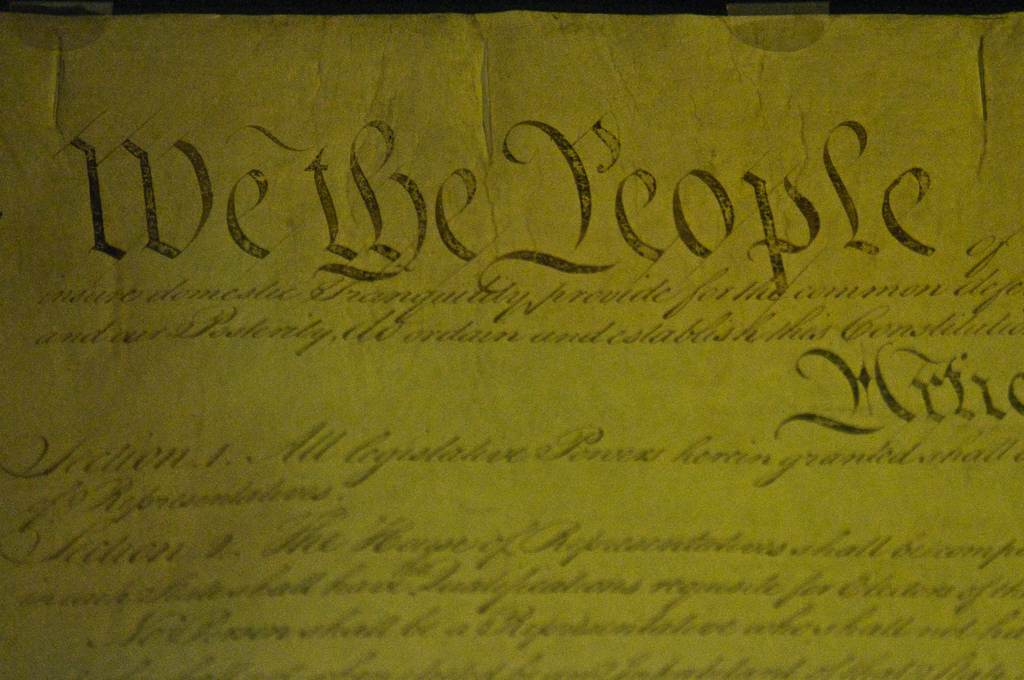 We the People of
insure domestic Tranquility, provide for the common defe
and our Posterity, do ordain and establish this Constitutio
Artic
Section. 1. All legislative Powers herein granted shall
of Representatives.
Section. 2. The House of Representatives shall be comp
in each State shall have Qualifications requisite for Electors of the
No Person shall be a Representative who shall not ha